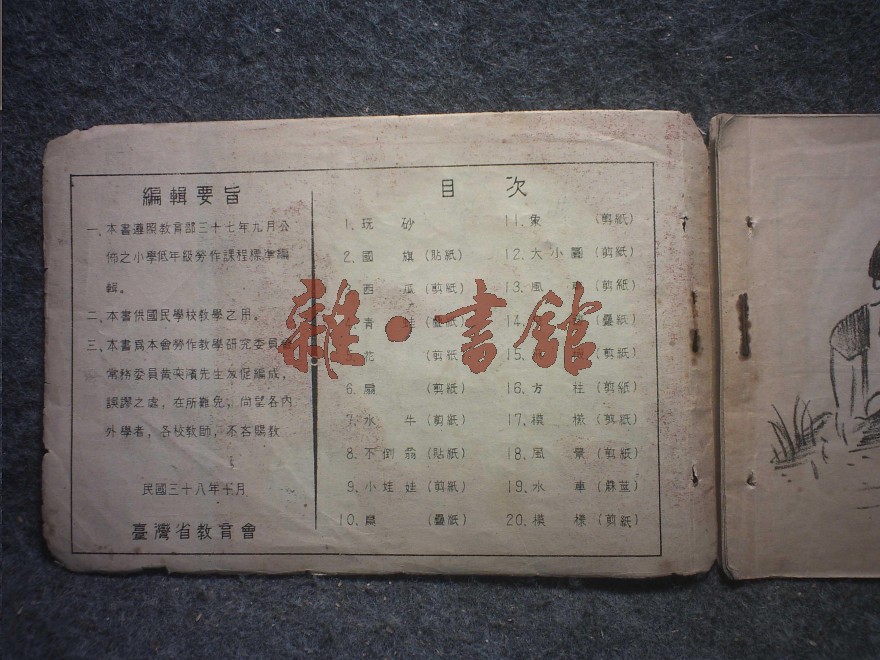 編輯要旨
一、本書遵照教育部三十七年九月公
佈之小學低年級勞作課程標準編
輯。
二、本書供國民學校教學之用。
三、本書為本會勞作教學研究委員會
常務委員黃奕濱先生倉促編成，
誤謬之處，在所難免，尚望各內
外學者，各校教師，不吝賜教
民國三十八年十月
臺灣省教育會
目次
1. 玩砂
2. 國旗(貼紙)
西瓜(剪紙)
青蛙(疊紙)
花(剪紙)
6. 扇(剪紙)
7. 水牛(剪紙)
8. 不倒翁(貼紙)
9. 小娃娃(剪紙)
10. (疊紙)
11. 象(剪紙)
12. 大小圓(剪紙)
13. 風車(剪紙)
14. (疊紙)
15. (剪紙)
16. 方柱(剪紙)
17. 模樣(剪紙)
18. 風景(剪紙)
19. 水車
20. 模樣(剪紙)
雜·書館